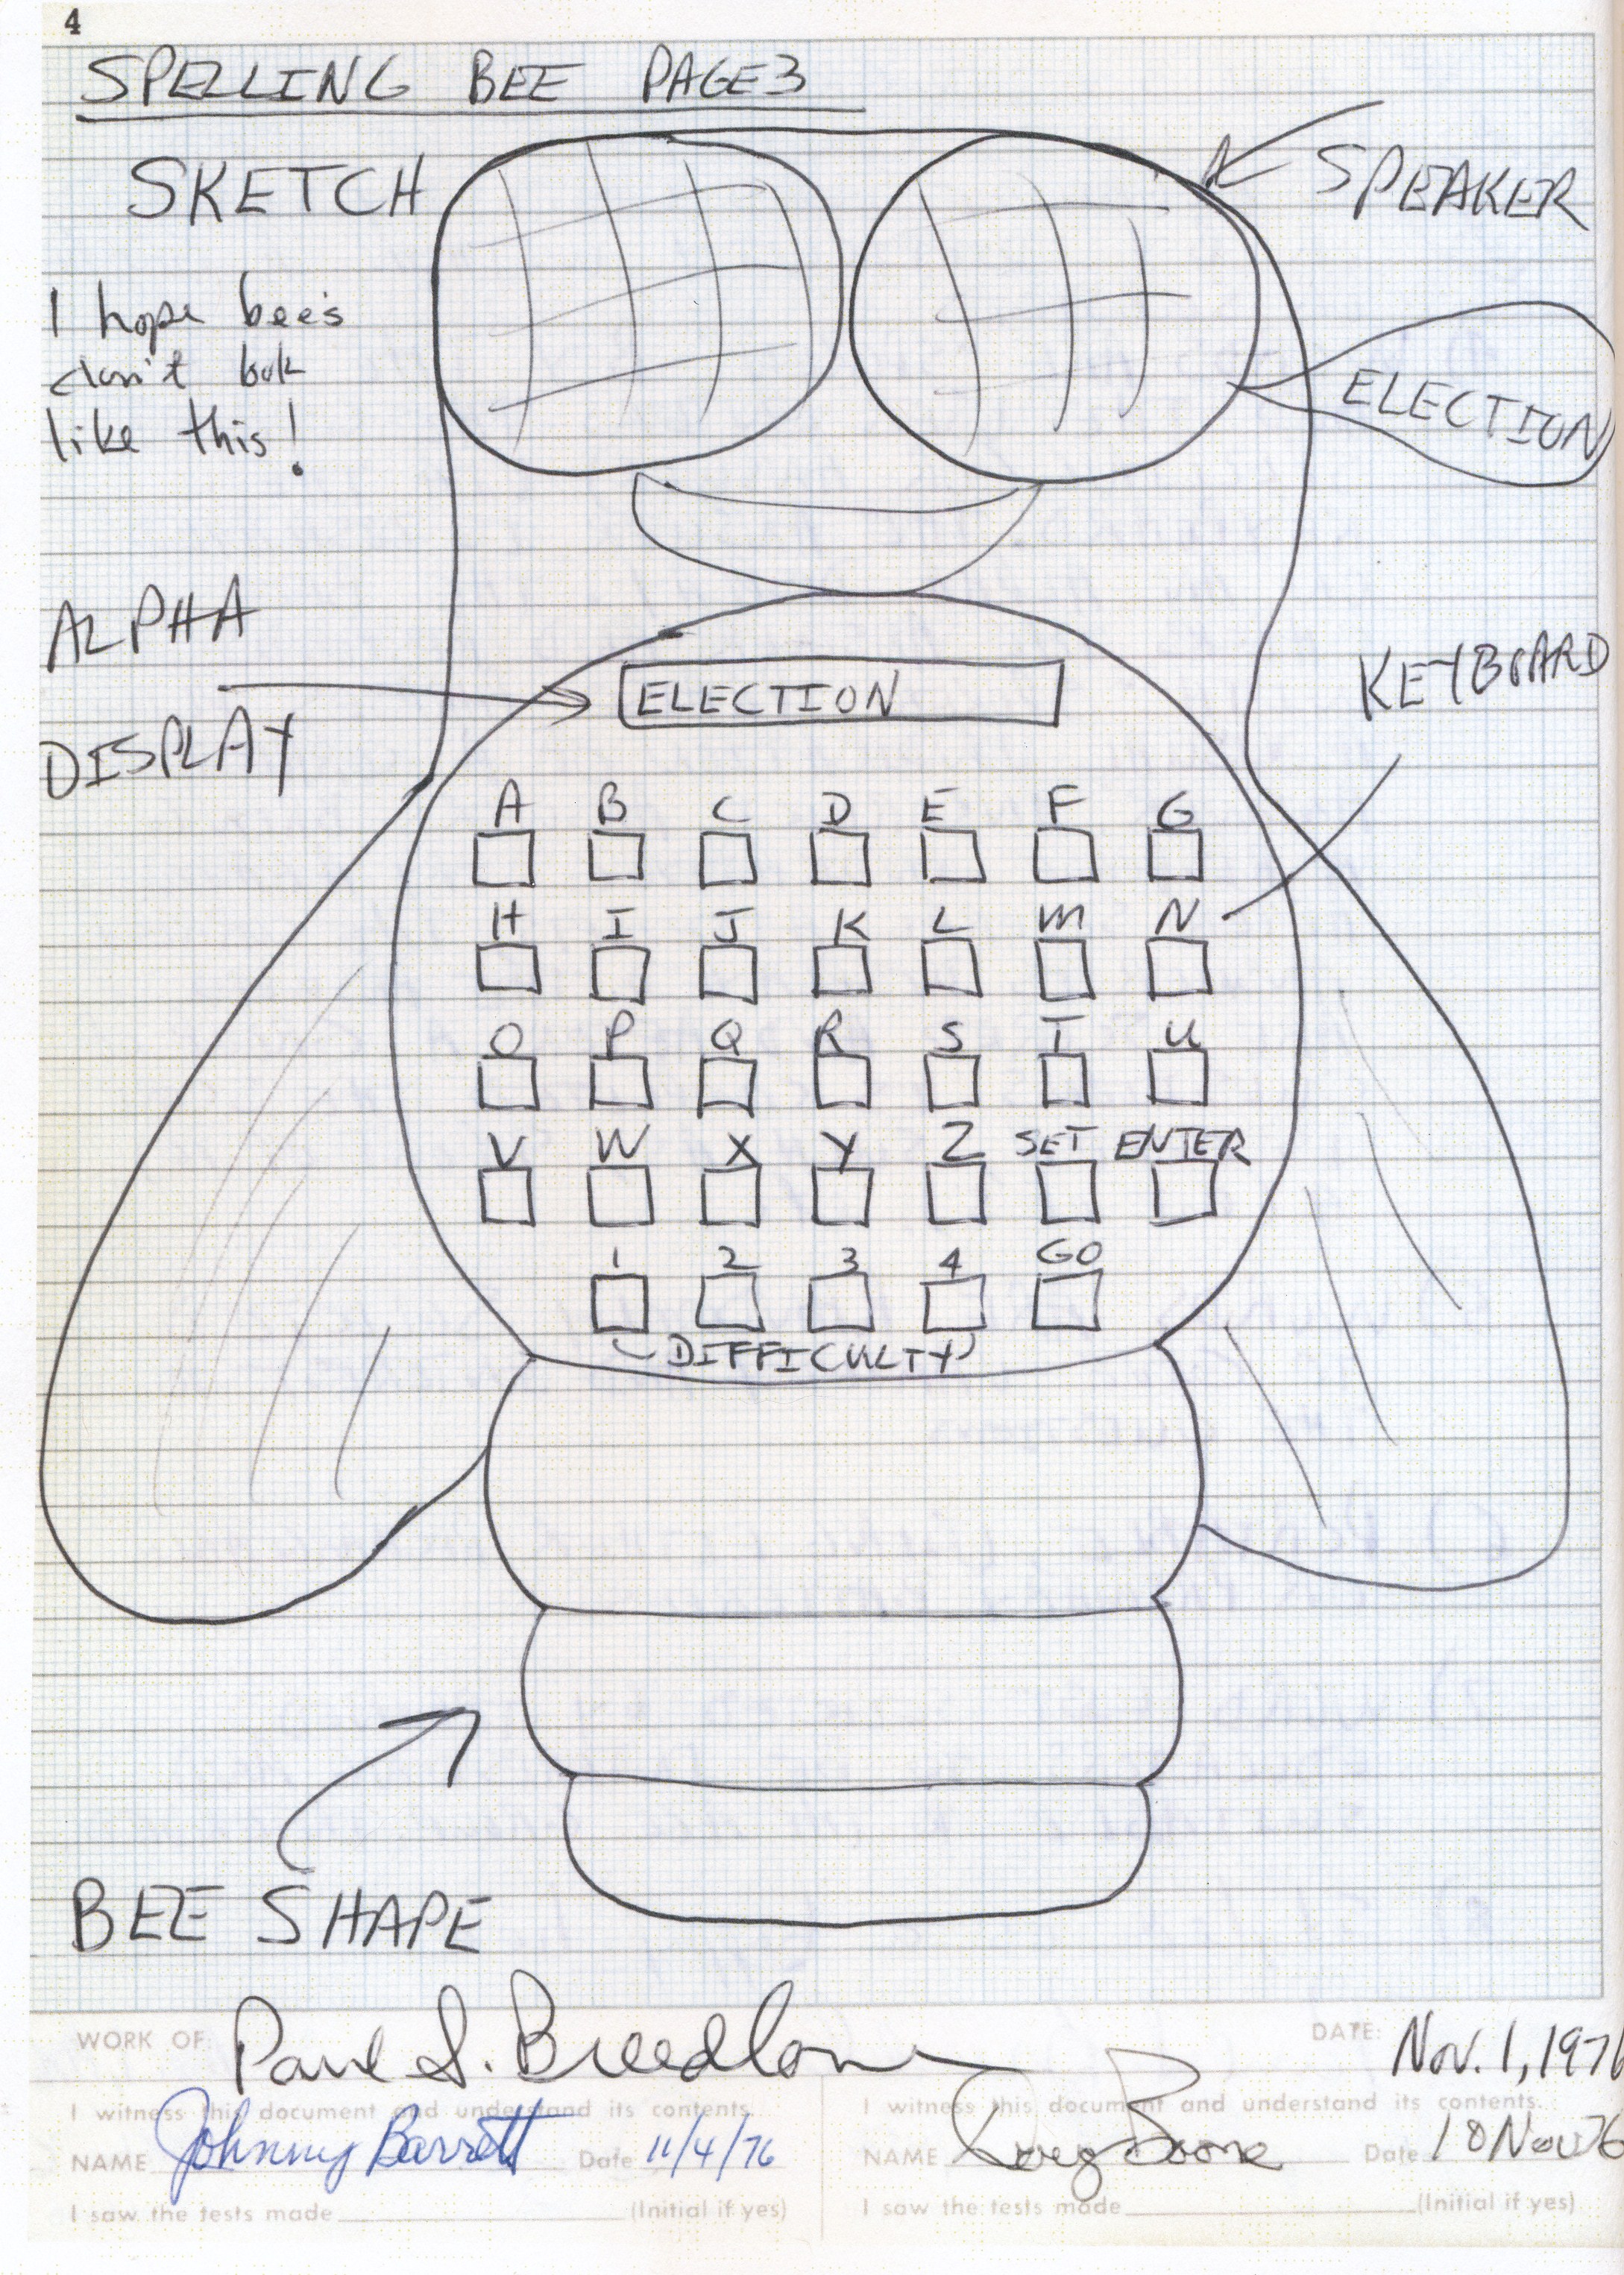 4
SPELLING BEE PAGE 3
SKETCH
SPEAKER
I hope bee's
don't look
like this!
ELECTION
ALPHA
DISPLAY
ELECTION
KEYBOARD
A B C D E F G
H I J K L M N
O P Q R S T U
V W X Y Z SET ENTER
1 2 3 4 GO
DIFFICULTY
BEE SHAPE
WORK OF: Paul S. Breedlove DATE: Nov. 1, 1976
I witness this document and understand its contents.
NAME Johnny Barrett Date 11/4/76
I saw the tests made (Initial if yes)
I witness this document and understand its contents.
NAME Date 18 Nov 76
I saw the tests made (Initial if yes)